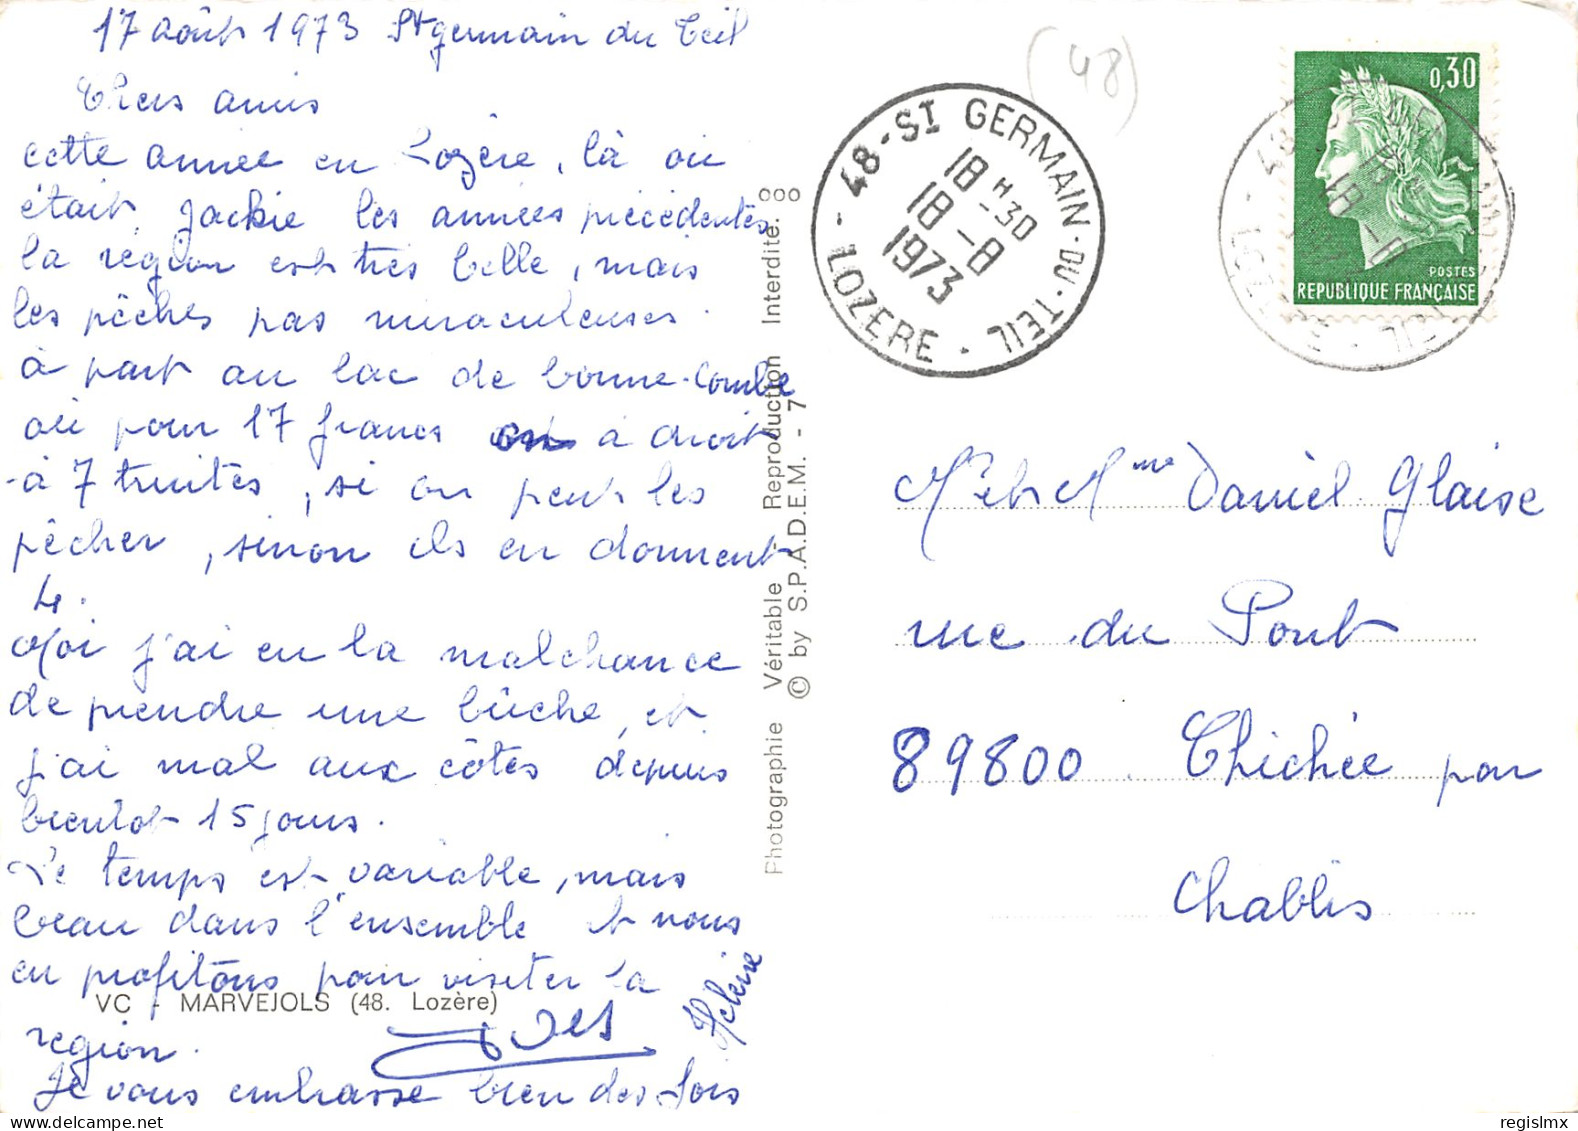 17 août 1973 St germain du Teil
Chers amis
cette année en Lozère, là où
était Jackie les années précédentes
la région est très belle, mais
les pêches pas miraculeuses.
à part au lac de bonne-combe
où pour 17 francs on a droit
à 7 truites, si on peut les
pêcher, sinon ils en donnent
4.
Moi j'ai eu la malchance
de prendre une bûche, et
j'ai mal aux côtes depuis
bientôt 15 jours.
Le temps est variable, mais
beau dans l'ensemble et nous
en profitons pour visiter la
région.
Je vous embrasse bien des fois
Hélène
VC - MARVEJOLS (48. Lozère)
Photographie Véritable - Reproduction Interdite.
© by S.P.A.D.E.M. - 7
(48)
48 - ST GERMAIN - DU - TEIL - LOZERE -
18 H 30
18 - 8
1973
0,30
POSTES
REPUBLIQUE FRANÇAISE
Mr et Mme Daniel Glaise
rue du Pont
89800 Chichée par
Chablis
regislmx